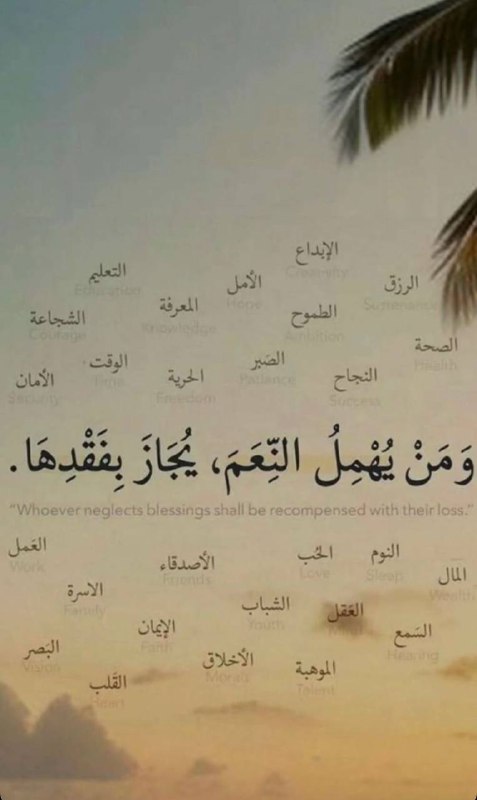 الإبداع
Creativity
التعليم
Education
الأمل
Hope
الرزق
Sustenance
الشجاعة
Courage
المعرفة
Knowledge
الطموح
Ambition
الصحة
Health
الأمان
Security
الوقت
Time
الحرية
Freedom
الصَبر
Patience
النجاح
Success
وَمَنْ يُهْمِلُ النِّعَمَ، يُجَازَ بِفَقْدِهَا.
“Whoever neglects blessings shall be recompensed with their loss.”
العَمل
Work
الأصدقاء
Friends
الحُب
Love
النوم
Sleep
المال
Wealth
الاسرة
Family
الشباب
Youth
العَقل
السَمع
Hearing
الإيمان
Faith
البَصر
Vision
الأخلاق
Morals
الموهبة
Talent
القَلب
Heart